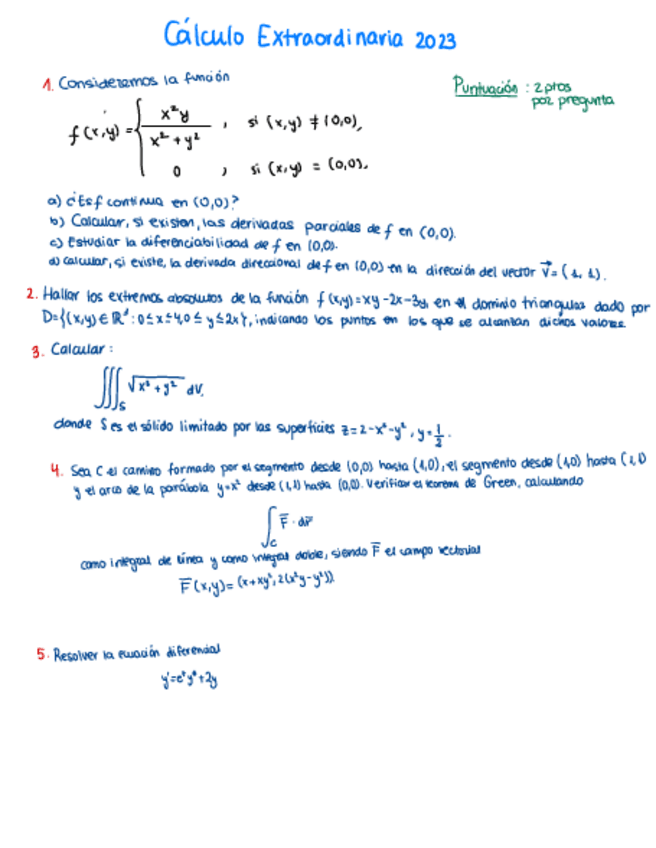 Cálculo Extraordinaria 2023
1. Consideremos la función
Puntuación : 2 ptos
por pregunta
f(x,y) = { x²y / x² + y² , si (x,y) ≠ (0,0),
0 , si (x,y) = (0,0).
a) ¿Es f continua en (0,0)?
b) Calcular, si existen, las derivadas parciales de f en (0,0).
c) Estudiar la diferenciabilidad de f en (0,0).
d) calcular, si existe, la derivada direccional de f en (0,0) en la dirección del vector v⃗ = (1, 1).
2. Hallar los extremos absolutos de la función f(x,y)=xy-2x-3y, en el dominio triangular dado por
D={(x,y) ∈ ℝ : 0≤x≤4, 0≤y≤2x}, indicando los puntos en los que se alcanzan dichos valores
3. Calcular :
∭_S √x²+y² dV,
donde S es el sólido limitado por las superficies z=2-x²-y², y=1/2.
4. Sea C el camino formado por el segmento desde (0,0) hasta (1,0), el segmento desde (1,0) hasta (1,1)
y el arco de la parábola y=x² desde (1,1) hasta (0,0). Verificar el teorema de Green, calculando
∫_C F̅ · dr̅
como integral de línea y como integral doble, siendo F̅ el campo vectorial
F̅(x,y)=(x+xy²,2(x²y-y²))
5. Resolver la ecuación diferencial